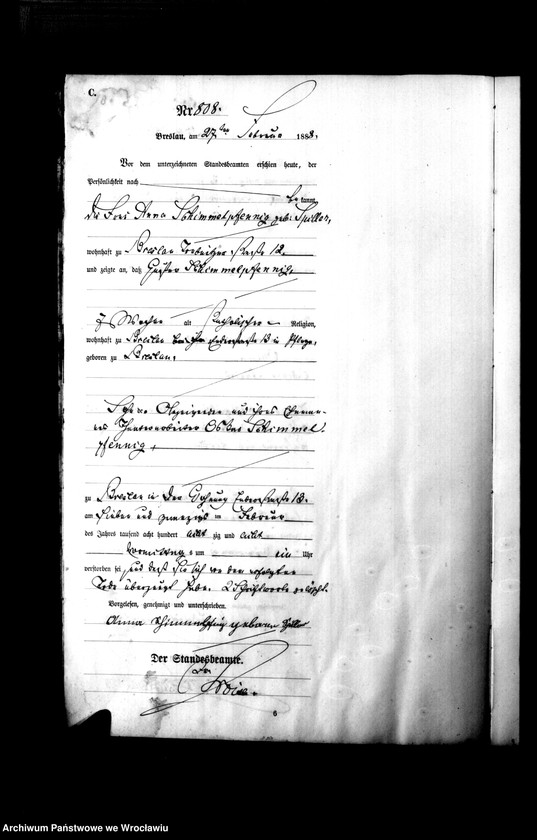 C.
Nr. 808.
Breslau, am 27ten Februar 1888.
Vor dem unterzeichneten Standesbeamten erschien heute, der
Persönlichkeit nach
bekannt,
die Frau Anna Schimmelpfennig geb. Spiller,
wohnhaft zu Breslau Trebnitzer 12.
und zeigte an, daß Gustav Schimmelpfennig,
7 Wochen alt katholischer Religion,
wohnhaft zu Breslau 13 in Pflege,
geboren zu Breslau,
Sohn der Anzeigenden und ihres Eheman-
nes Oskar Schimmel-
pfennig,
zu Breslau in der Wohnung 13.
am sieben und zwanzigsten Februar
des Jahres tausend acht hundert acht zig und acht
Vormittags um ein Uhr
verstorben sei, und daß sie sich von dem erfolgten
Tode überzeugt habe. 2 Druckworte gelöscht.
Vorgelesen, genehmigt und unterschrieben.
Anna Schimmelpfennig geborene Spiller
Der Standesbeamte.
6
Archiwum Państwowe we Wrocławiu